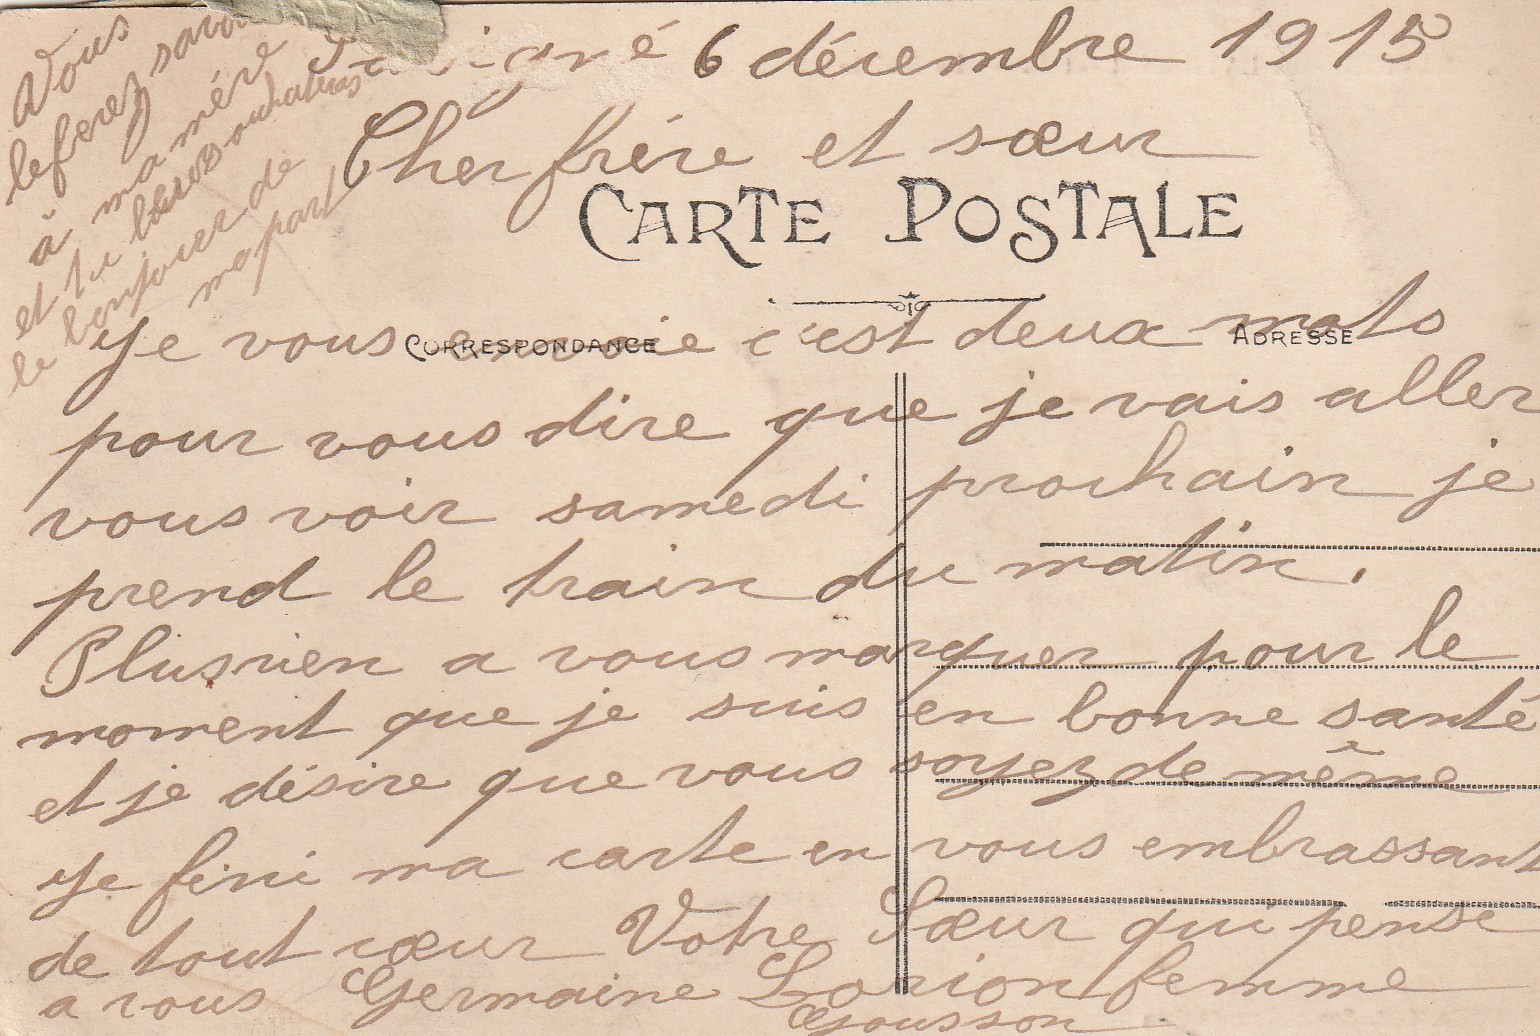 6 décembre 1915
Cher frère et sœur
CARTE POSTALE
CORRESPONDANCE
ADRESSE
Je vous envoie c'est deux mots
pour vous dire que je vais aller
vous voir samedi prochain je
prend le train du matin.
Plusrien a vous marquer pour le
moment que je suis en bonne santé
et je désire que vous soyez de même
Je fini ma carte en vous embrassant
de tout cœur Votre Sœur qui pense
a vous Germaine Lorion femme
Gousson
Vous
leferez savoir
à ma mère
et lui
le bonjour de
ma part